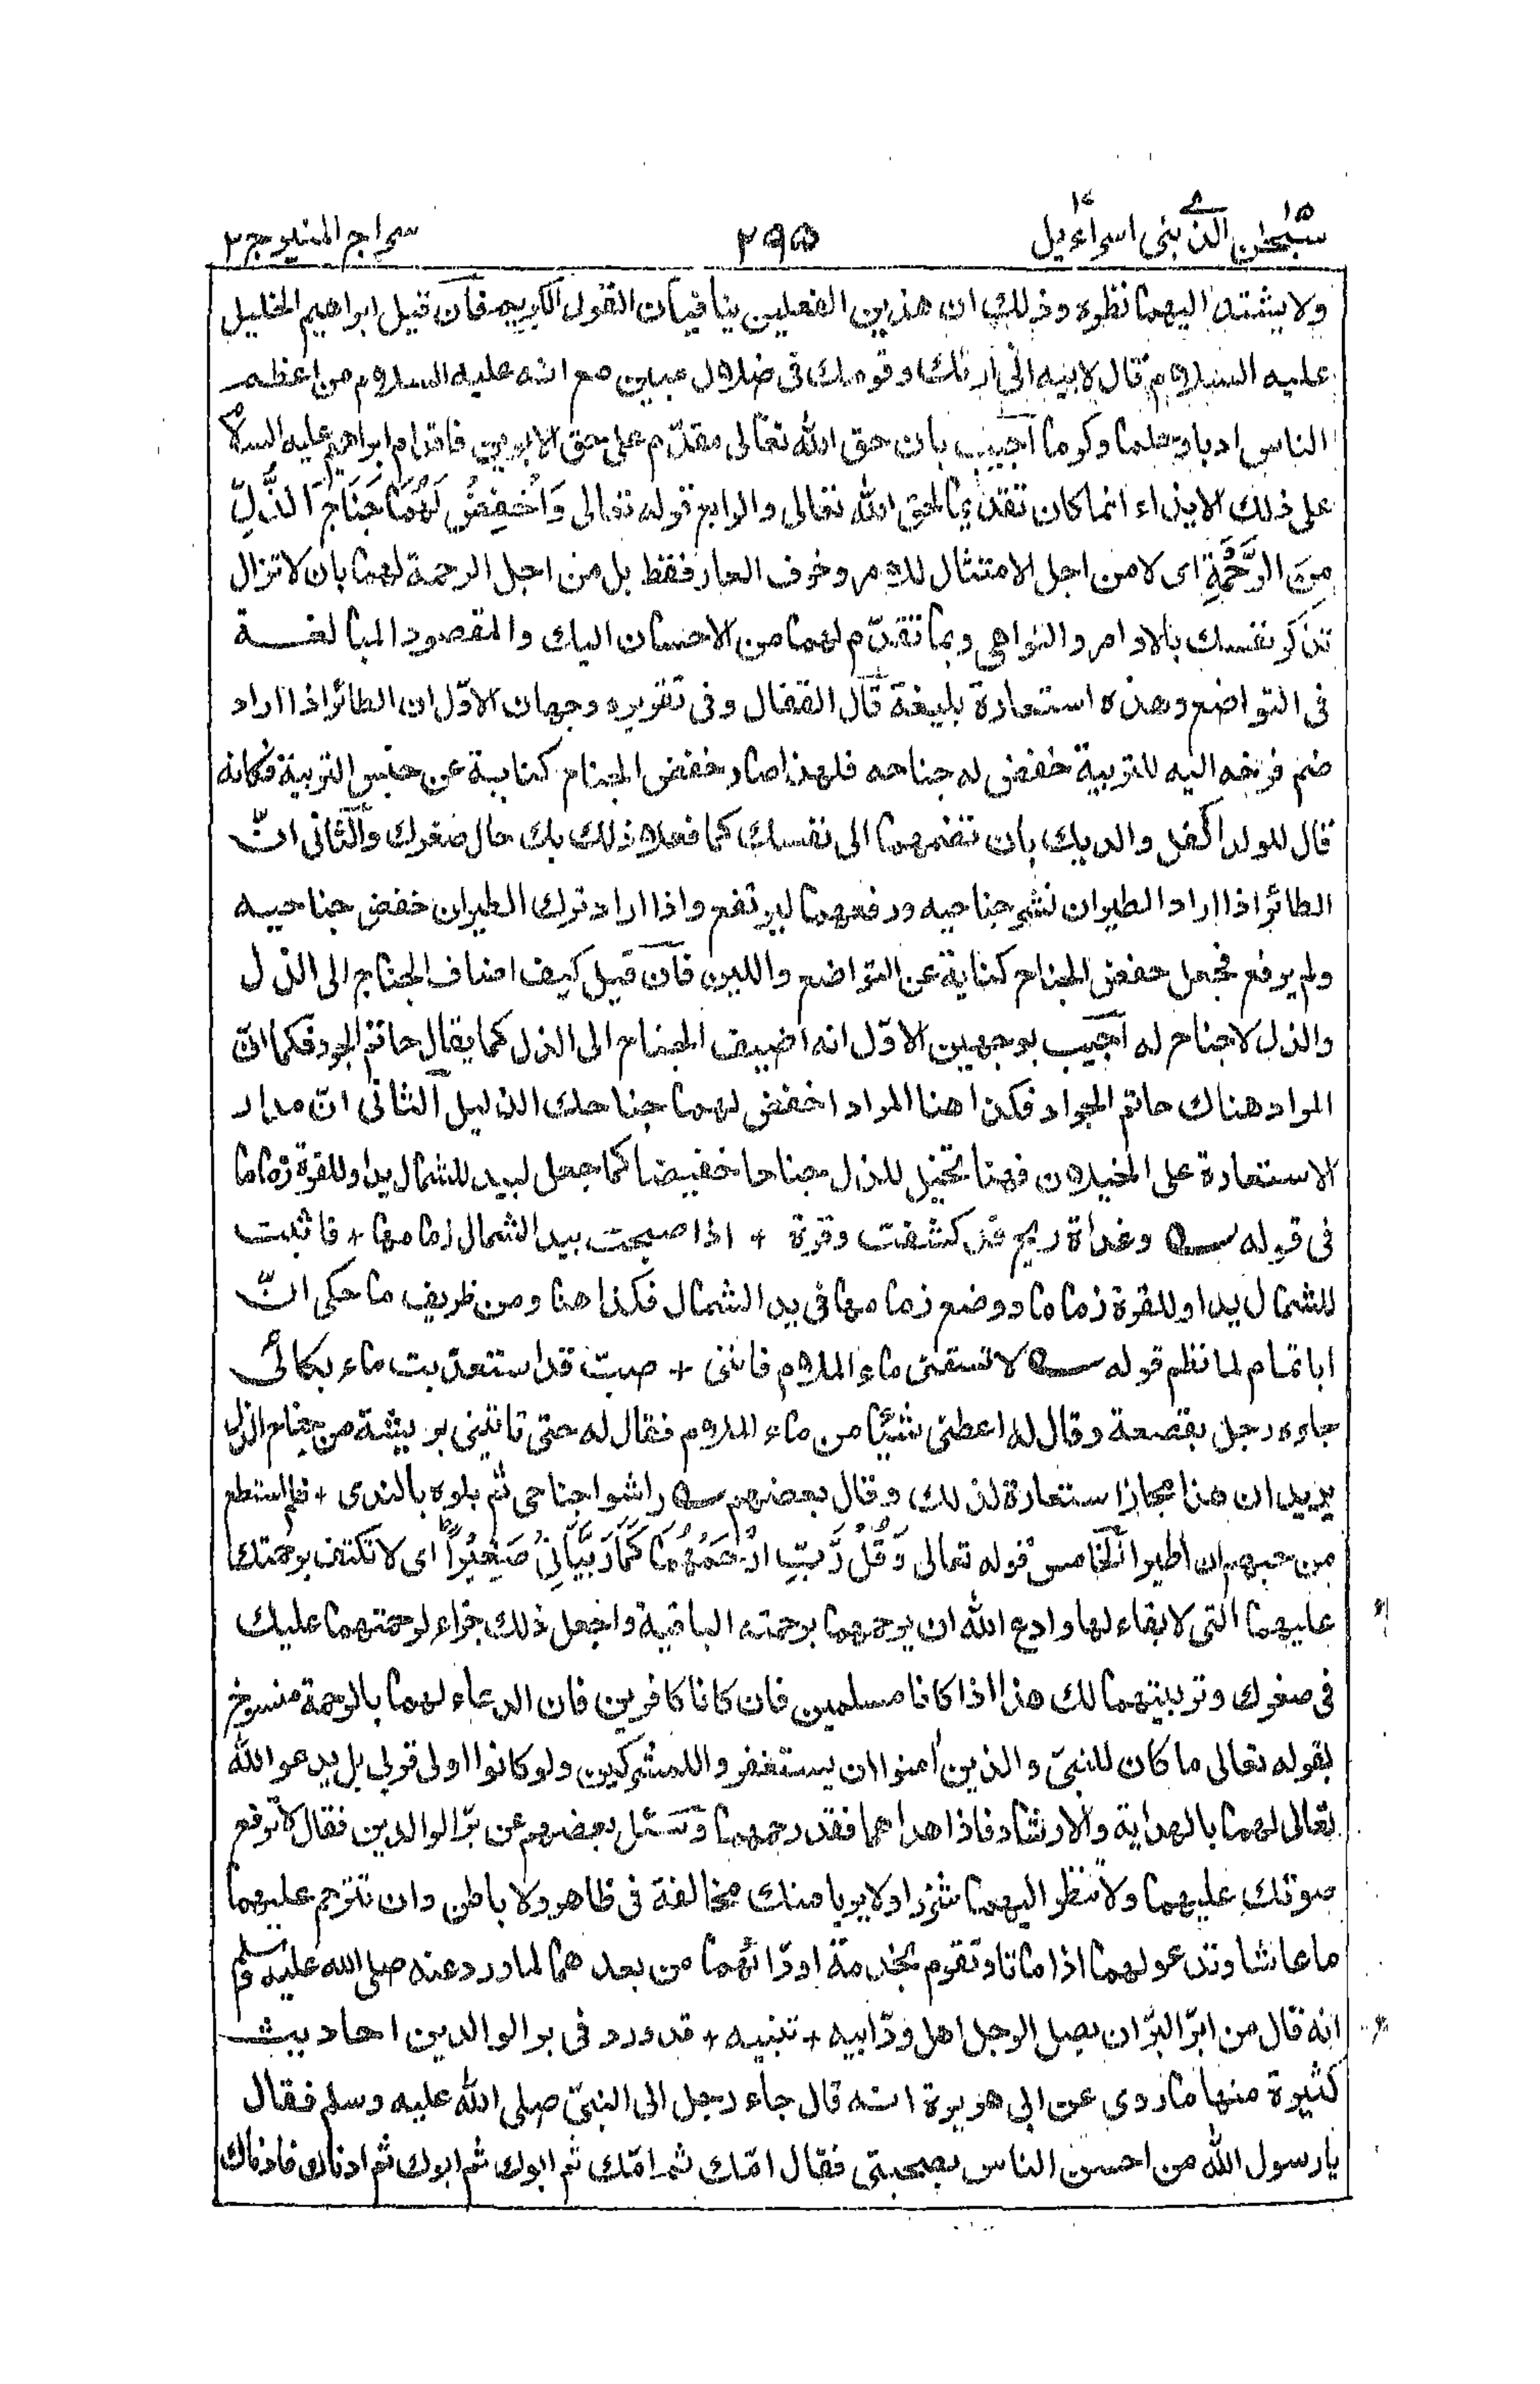 سبحٰن الذی ١٥ بنی اسراءیل ١٧
٢٩٥
سراج المنیر ج ٢
ولا یشتد الیهما نظره وذلك ان هذین الفعلین ینافیان القول الکریم فان قیل ابراهیم الخلیل
علیه السلام قال لابیه انی ارٰىك وقومك فی ضلال مبین مع انه علیه السلام من اعظم
الناس ادبا وحلما وکرما اجیب بان حق الله تعالی مقدّم علی حق الابوین فاقدام ابراهیم علیه السلام
علی ذلك الایذاء انما کان تقدیما لحق الله تعالی والرابع قوله تعالی وَاخْفِضْ لَهُمَا جَنَاحَ الذُّلِّ
مِنَ الرَّحْمَةِ ای لا من اجل الامتثال للامر وخوف العار فقط بل من اجل الرحمة لهما بان لا تزال
تذکر نفسك بالاوامر والنواهی وبما تقدّم لهما من الاحسان الیك والمقصود المبالغة
فی التواضع وهذه استعارة بلیغة قال القفال وفی تقریره وجهان الاوّل ان الطائر اذا اراد
ضم فرخه الیه للتربیة خفض له جناحه فلهذا صار خفض الجناح کنایة عن حسن التربیة فکانه
قال للولد اکفل والدیك بان تضمهما الی نفسك کما فعلا ذلك بك حال صغرك والثانی انّ
الطائر اذا اراد الطیران نشر جناحیه ورفعهما لیرتفع واذا اراد ترك الطیران خفض جناحیه
ولم یرفع فجعل خفض الجناح کنایة عن التواضع واللین فان قیل کیف اضاف الجناح الی الذل
والذل لا جناح له اجیب بوجهین الاوّل انه اضیف الجناح الی الذل کما یقال حاتم الجود فکما انّ
المراد هناك حاتم الجواد فکذا هنا المراد اخفض لهما جناحك الذلیل الثانی انّ مدار
الاستعارة علی الخیلان فهنا تخیل للذل جناحا خفیضا کما جعل لبید للشمال یدا وللقرة زماما
فی قوله ؎ وغداة ریح قد کشفت وقرة + اذا صبحت بید الشمال زمامها + فاثبت
للشمال یدا وللقرة زماما ووضع زمامها فی ید الشمال فکذا هنا ومن ظریف ما حکی انّ
اباتمام لما نظم قوله ؎ لا تسقنی ماء الملام فاننی + صبّ قد استعذبت ماء بکائی
جاءه رجل بقصعة وقال له اعطنی شیئا من ماء الملام فقال له حتی تاتینی بریشة من جناح الذل
یرید ان هذا مجاز استعارة لذلك وقال بعضهم ؎ راشوا جناحی ثم بلوه بالندی + فلم استطع
من حبهم ان اطیرا الخامس قوله تعالی وَقُلْ رَّبِّ ارْحَمْهُمَا کَمَا رَبَّیَانِیْ صَغِیْرًا ای لا تکتف برحمتك
علیهما التی لا بقاء لها وادع الله ان یرحمهما برحمته الباقیة واجعل ذلك جزاء لرحمتهما علیك
فی صغرك وتربیتهما لك هذا اذا کانا مسلمین فان کانا کافرین فان الدعاء لهما بالرحمة منسوخ
بقوله تعالی ما کان للنبیّ والذین اٰمنوا ان یستغفروا للمشرکین ولو کانوا اولی قربی بل یدعو الله
تعالی لهما بالهدایة والارشاد فاذا هداهما فقد رحمهما وسئل بعضهم عن برّ الوالدین فقال لا ترفع
صوتك علیهما ولا تنظر الیهما شزرا ولا یریا منك مخالفة فی ظاهر ولا باطن وان تترحم علیهما
ما عاشا وتدعو لهما اذا ماتا وتقوم بخدمة اودّائهما من بعدهما لما ورد عنه صلی الله علیه وسلم
انه قال من ابرّ البرّ ان یصل الرجل اهل ودّ ابیه + تنبیه + قد ورد فی بر الوالدین احادیث
کثیرة منها ما روی عن ابی هریرة انه قال جاء رجل الی النبیّ صلی الله علیه وسلم فقال
یا رسول الله من احسن الناس بصحبتی فقال امّك ثم امّك ثم ابوك ثم ابوك ثم ادناك فادناك